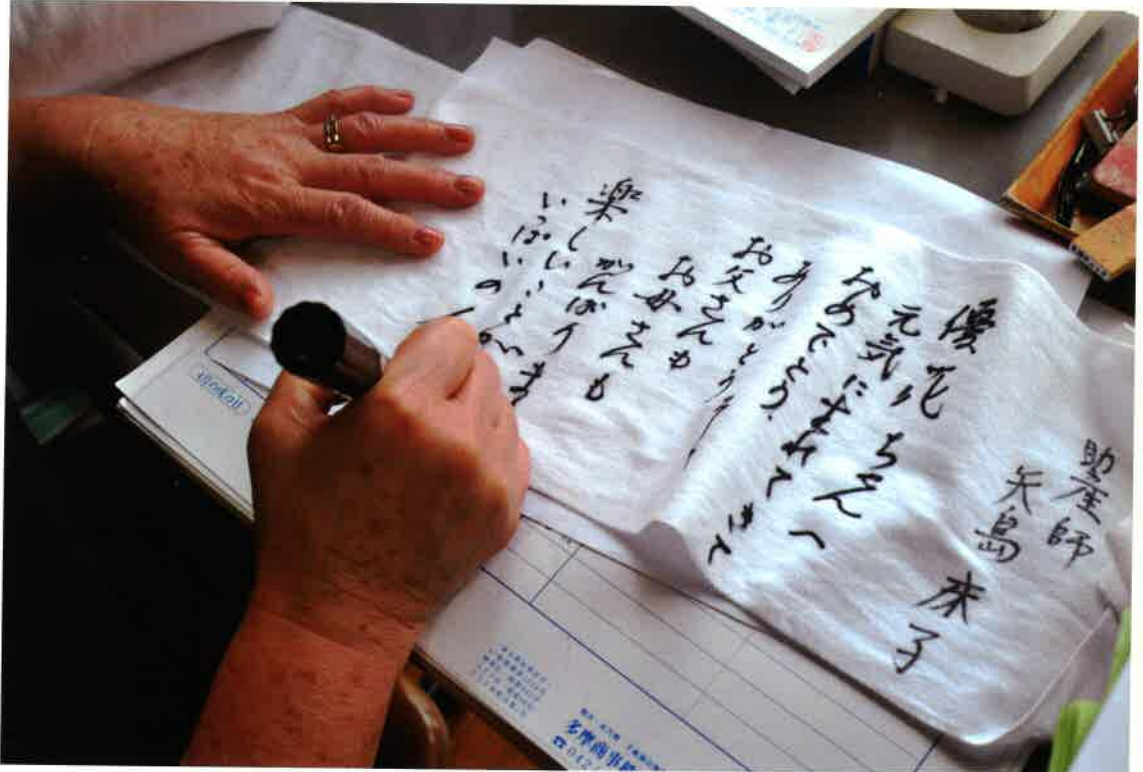 助産師
矢島 床子
優花ちゃんへ
元気に生まれてきて
おめでとう。
ありがとう
お父さんも
お母さんも
がんばります
楽しいことが
いっぱいの
多摩商事
☎042